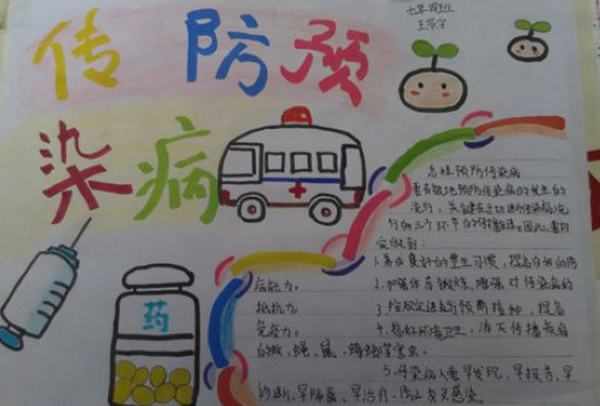 传防预
染病
药
怎样预防传染病
要有效地预防传染病的发生和
流行,关键在于切断传染病流
行的三个环节的
1.养成良好的卫生习惯,提高自我防
病能力。 2.加强体育锻炼,增强对传染病的
抵抗力 3 按规定进行预防接种,提高
免疫力。 4.搞好环境卫生,消灭传播疾病
的蚊,蝇,鼠,蟑螂等害虫。
5.传染病人要早发现,早报告,早
诊断,早隔离,早治疗,防止交叉感染。